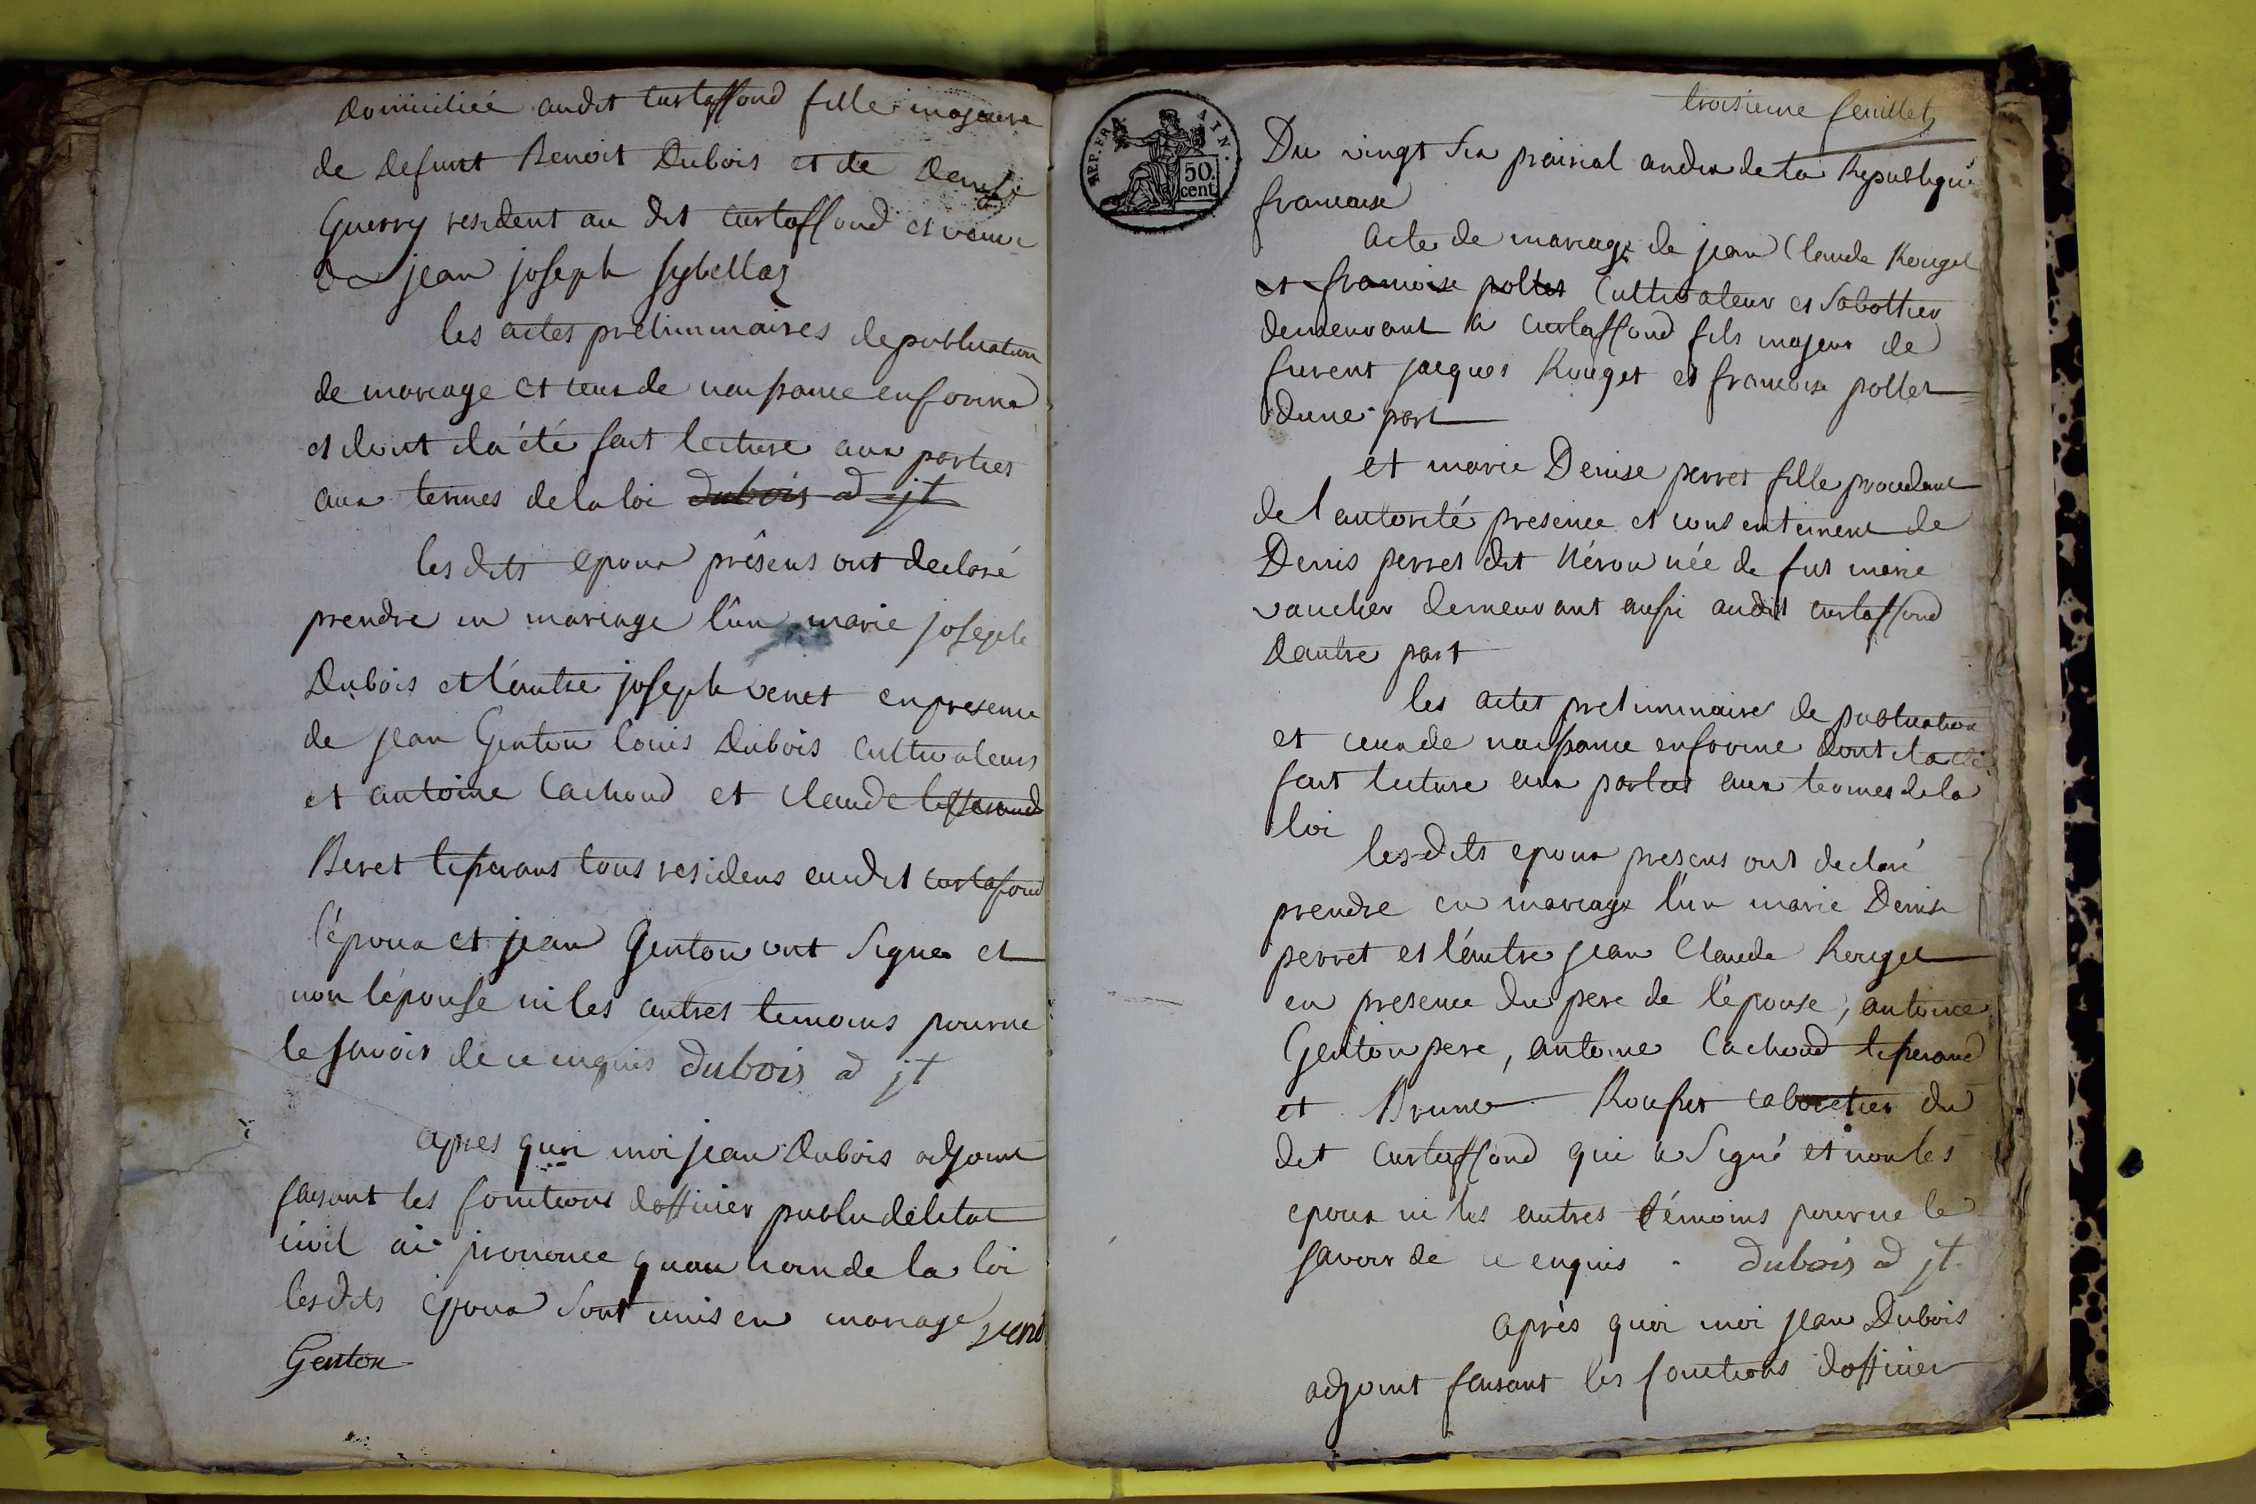 Domiciliée audit Curtaffond fille majeure
de defunt Benoit Dubois et de Denise
Guerry resident au dit Curtaffond et veuve
de jean joseph Sybellaz
les actes preliminaires de publication
de mariage et ceux de naissance en forme
et dont il a été fait lecture aux parties
aux termes de la loi dubois adjt
les dits epoux présens ont declaré
prendre en mariage l'un marie joseph
Dubois et l'autre joseph venet en presence
de jean Genton louis Dubois Cultivateurs
et antoine Cachoud et claude
Beret tisserans tous residens audit Curtafond
l'époux et jean Genton ont signé et
non l'épouse ni les autres temoins pour ne
le savoir de ce enquis dubois adjt
apres quoi moi jean Dubois adjoint
faisant les fonctions dofficier public de letat
civil ai prononcé quau nom de la loi
les dits epoux sont unis en mariage
Genton
troisieme feuillet
REP. FRA
TIN.
50. cent.
Du vingt six prairial an dix de la Republique
francaise
acte de mariage de jean Claude Rouget
et francoise pollet Cultivateur et Sabottier
demeurant a Curtaffond fils majeur de
furent jacques Rouget et francoise pollet
dune part
et marie Denise perret fille procedant
de l autorité presence et consentement de
Denis perret dit Néron née de fut marie
vaucher demeurant aussi audit Curtaffond
dautre part
les actes preliminaires de publication
et ceux de naissance en forme dont il a été
fait lecture aux parties aux termes de la
loi
les dits epoux presens ont declaré
prendre en mariage l'un marie Denise
perret et l'autre jean Claude Rouget
en presence du pere de l'épouse, antoine
Genton pere, antoine Cachoud tisserand
et Brune Rousset cabaretier du
dit Curtaffond qui a signé et non les
epoux ni les autres témoins pour ne le
savoir de ce enquis . dubois adjt.
après quoi moi jean Dubois
adjoint faisant les fonctions dofficier